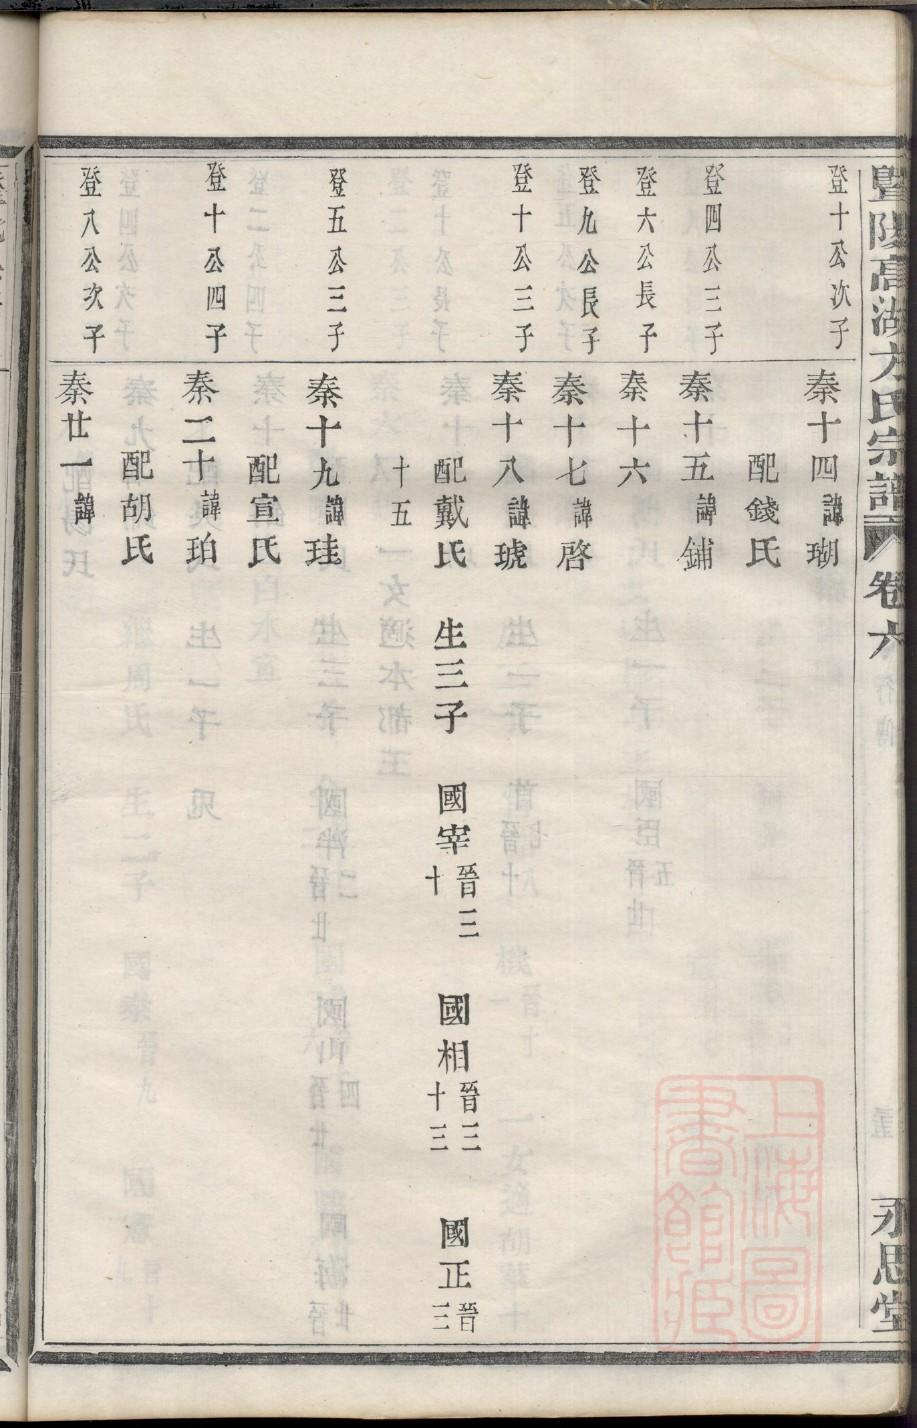 暨陽高湖方氏宗譜 卷六 永思堂
登十公次子 秦十四諱瑚
配錢氏
登四公三子 秦十五諱鋪
登六公長子 秦十六
登九公長子 秦十七諱啓
登十公三子 秦十八諱琥
配戴氏 生三子 國宰晉三十 國相晉三十三 國正晉三
十五
登五公三子 秦十九諱珪
配宣氏
登十公四子 秦二十諱珀
配胡氏
登八公次子 秦廿一諱
上海圖書館藏